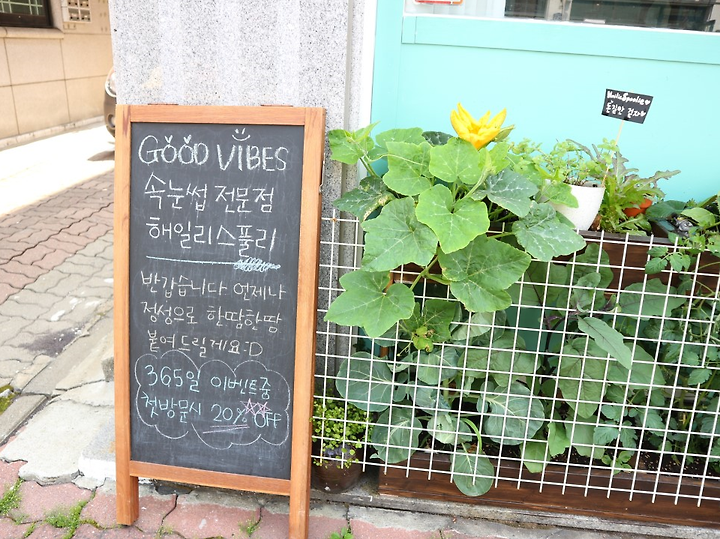 GOOD VIBES
속눈썹 전문점
해일리스풀리
반갑습니다 언제나
정성으로 한땀한땀
붙여드릴게요:D
365일 이벤트중
첫방문시 20% OFF
돈길만 걷자